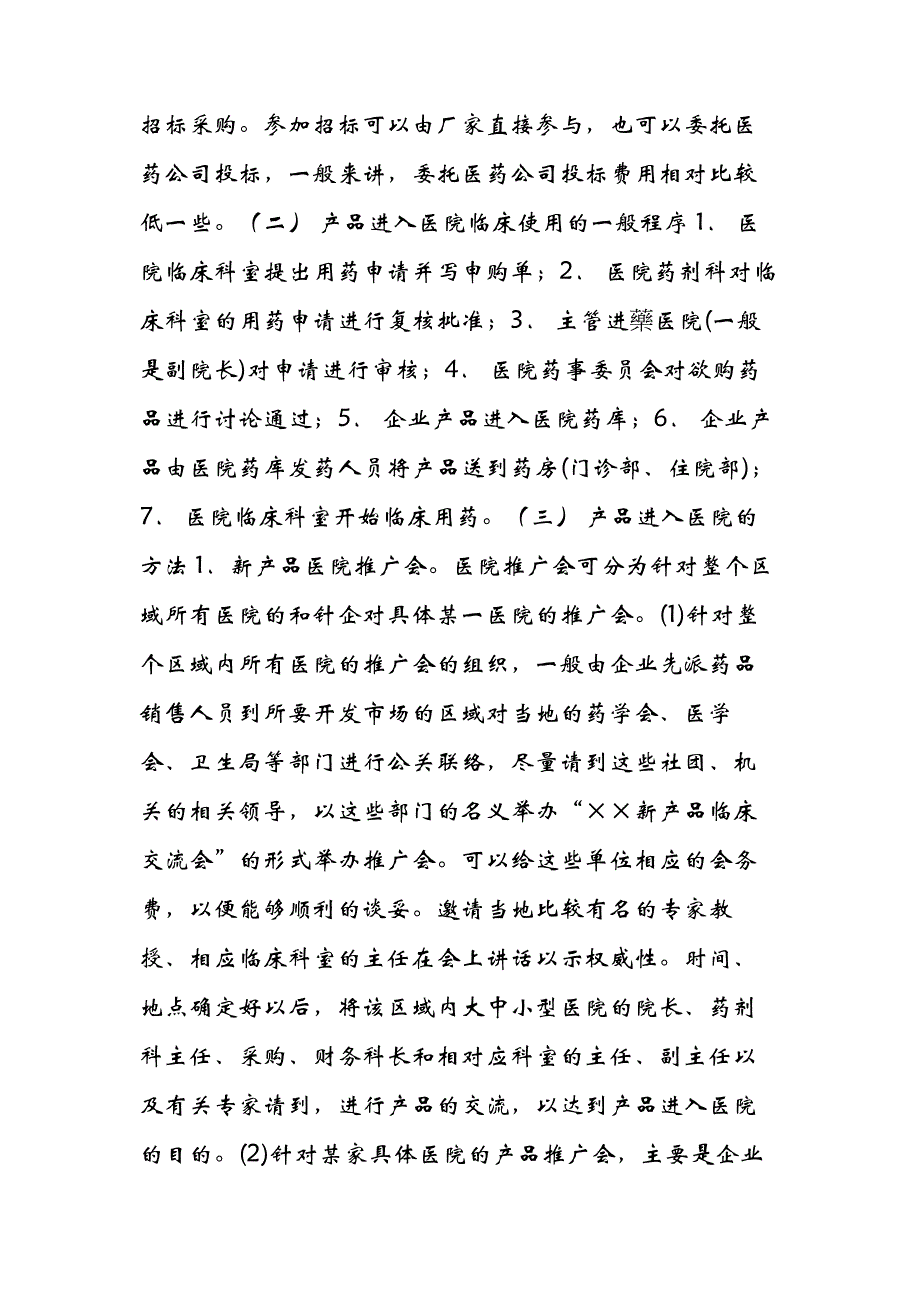 招标采购。参加招标可以由厂家直接参与，也可以委托医
药公司投标，一般来讲，委托医药公司投标费用相对比较
低一些。（二） 产品进入医院临床使用的一般程序 1． 医
院临床科室提出用药申请并写申购单；2． 医院药剂科对临
床科室的用药申请进行复核批准；3． 主管进藥医院(一般
是副院长)对申请进行审核；4． 医院药事委员会对欲购药
品进行讨论通过；5． 企业产品进入医院药库；6． 企业产
品由医院药库发药人员将产品送到药房(门诊部、住院部)；
7． 医院临床科室开始临床用药。（三） 产品进入医院的
方法 1．新产品医院推广会。医院推广会可分为针对整个区
域所有医院的和针企对具体某一医院的推广会。(1)针对整
个区域内所有医院的推广会的组织，一般由企业先派药品
销售人员到所要开发市场的区域对当地的药学会、医学
会、卫生局等部门进行公关联络，尽量请到这些社团、机
关的相关领导，以这些部门的名义举办“××新产品临床
交流会”的形式举办推广会。可以给这些单位相应的会务
费，以便能够顺利的谈妥。邀请当地比较有名的专家教
授、相应临床科室的主任在会上讲话以示权威性。时间、
地点确定好以后，将该区域内大中小型医院的院长、药剂
科主任、采购、财务科长和相对应科室的主任、副主任以
及有关专家请到，进行产品的交流，以达到产品进入医院
的目的。(2)针对某家具体医院的产品推广会，主要是企业